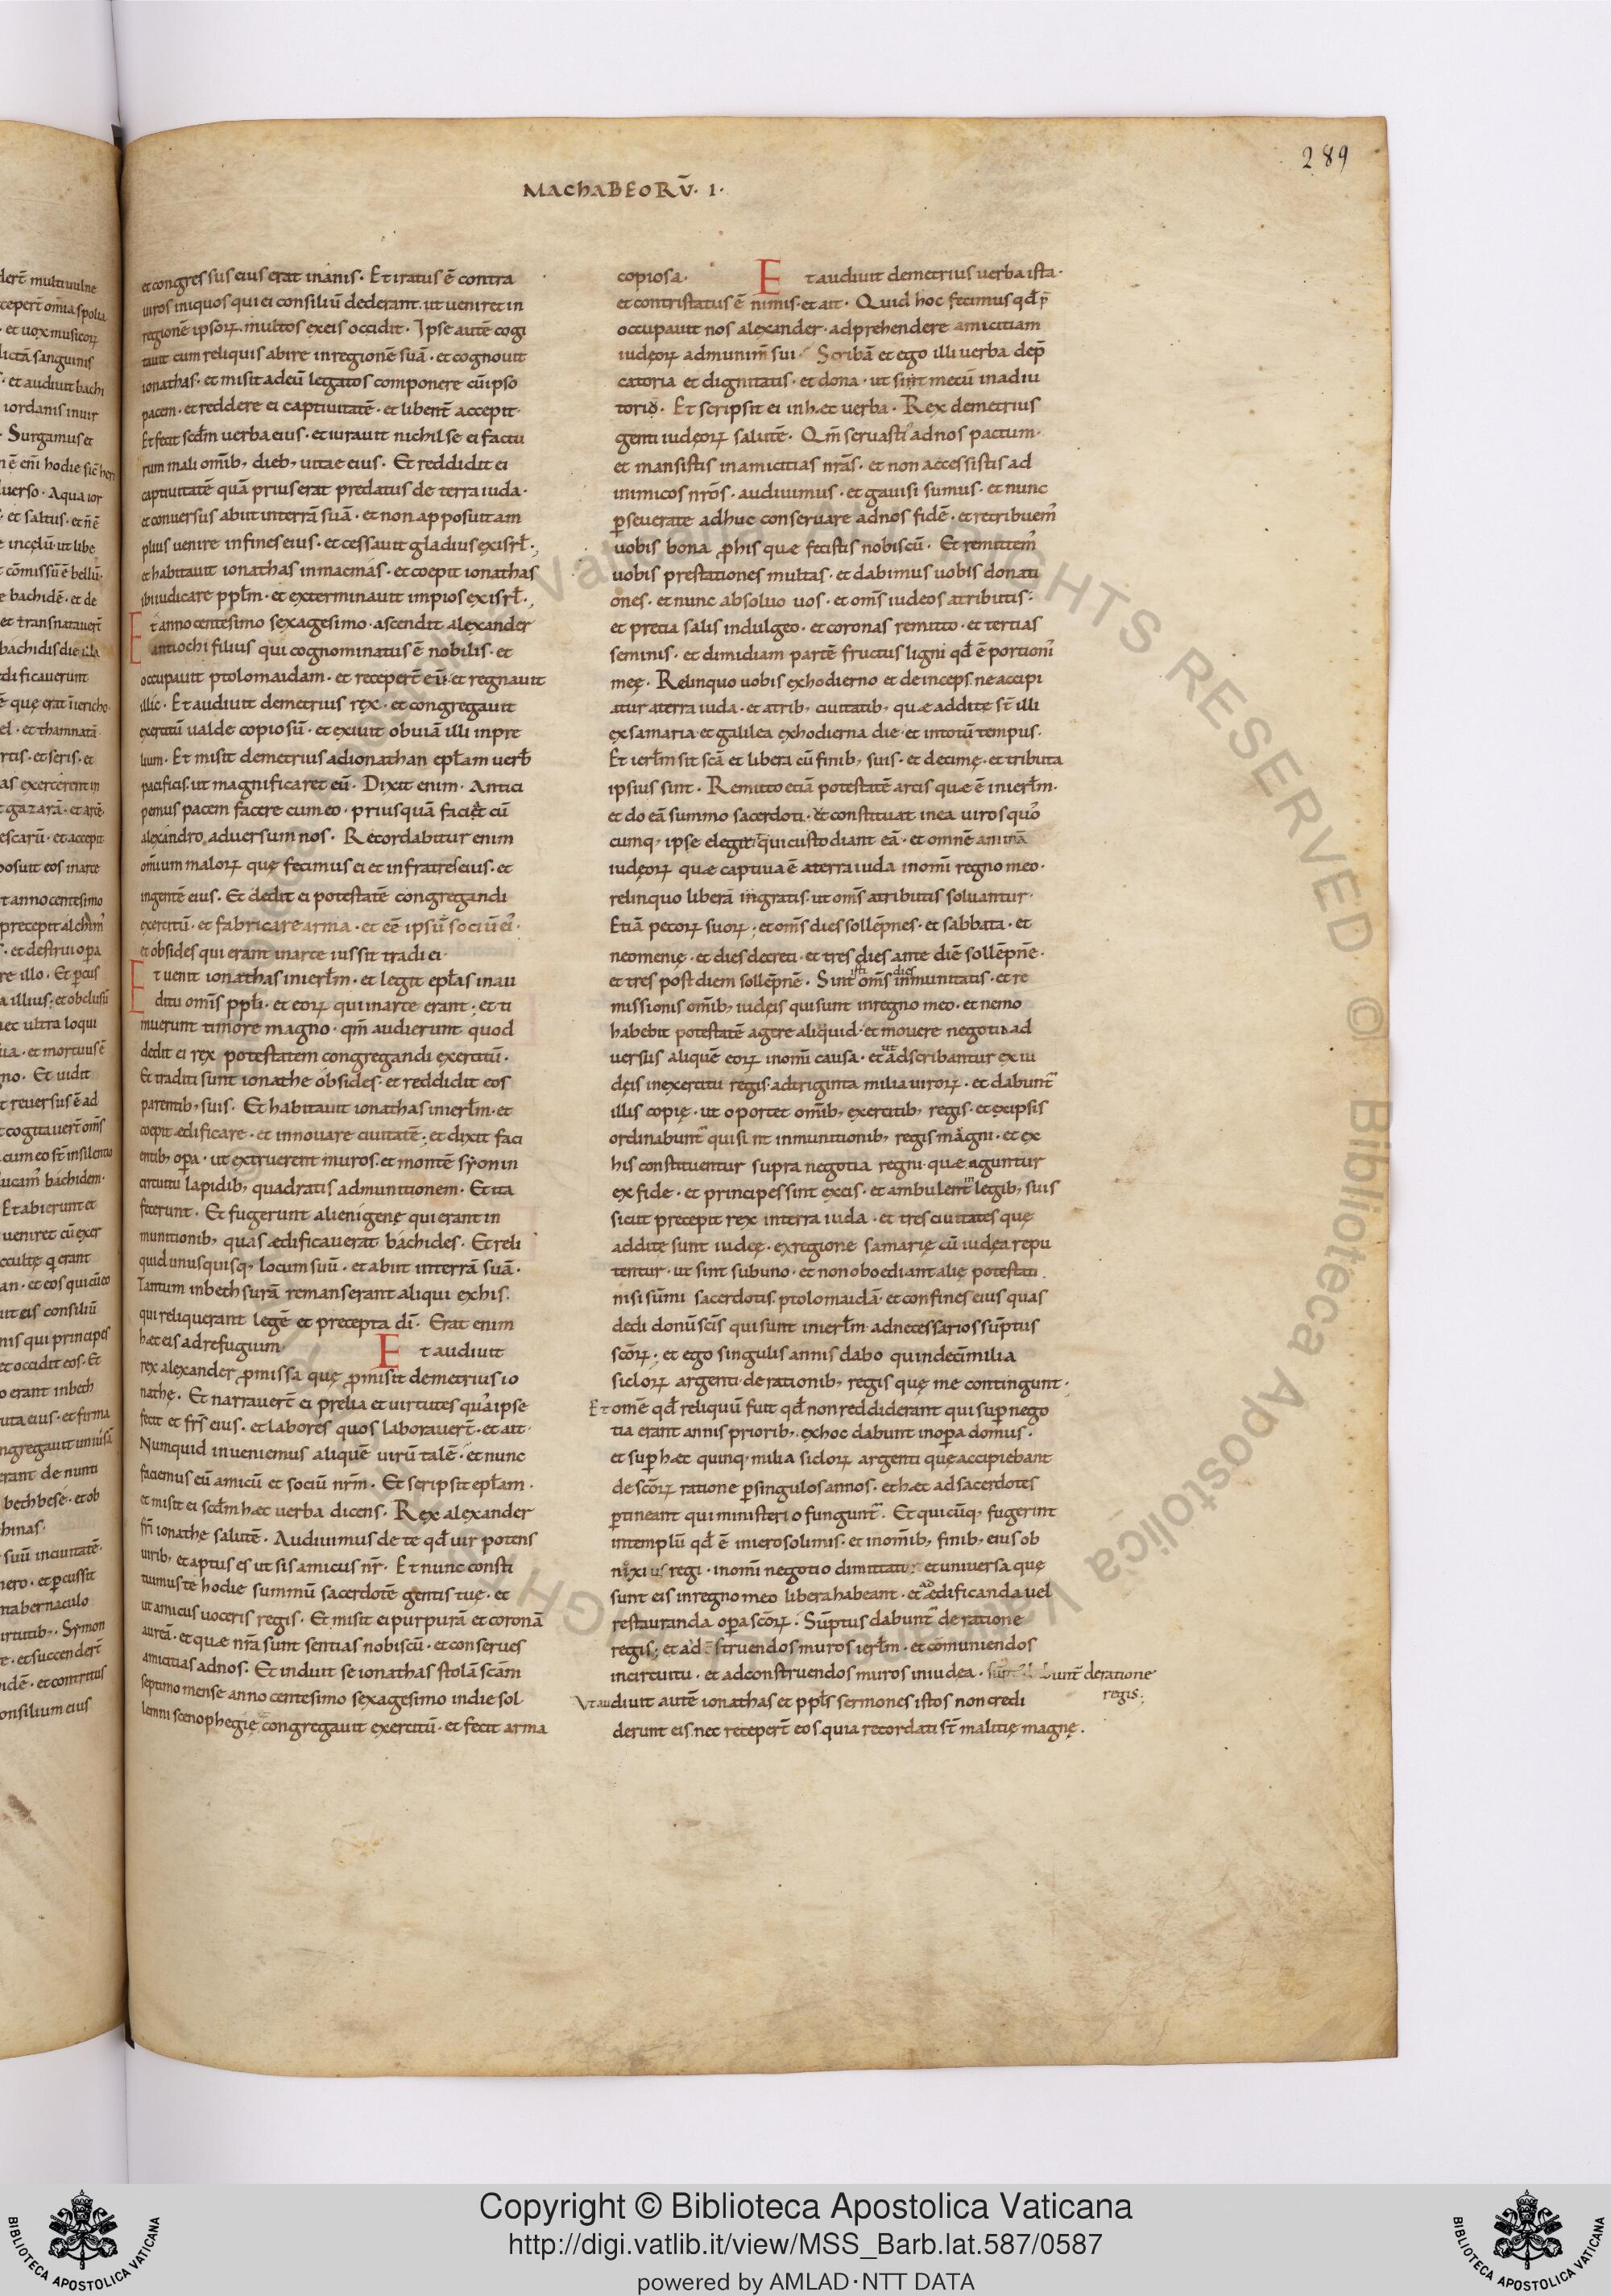 289
MACHABEORV̄· I·
dert̄ multi uulne
ceperт̄ om̄ia spolia
· et uox musicoꝝ
lictā sanguinis
· et audiuit bachi
iordanis in uir
· Surgamus et
iuerso · Aqua ior
· et saltus · et n̄ ē
e incęlū · ut libe
t cōmissū ē bellū·
e bachidē · et de
et transnatauert̄
bachidis die illa
dificauerunt
ē quę erat ī iericho·
el · et thamnatā·
rtis · et seris · et
as exercerent in
t gazarā · et arcē·
escarū · et accepit
posuit eos in arce
t anno centesimo
precepit alchim᷒
· et destrui oꝑa
re illo · Et ꝑcus
a illius · et obclusū
ec ultra loqui
ua · et mortuus ē
no · Et uidit
t reuersus ē ad
t cogitauert̄ om̄s
cum eo st̄ in silentio
ucam᷒ bachidem·
Et abierunt et
ueniret cū exer
cultę q̣ erant
an · et eos qui cū eo
uit eis consiliū
nis qui principes
et occidit eos · Et
o erant in beth
uta eius · et firma
ngregauit uniuersā
erant de nunti
bethbese · et ob
hinas·
suū in ciuitatē·
nero · et ꝑcussit
n tabernaculo
irtutib; · Symon
e · et succendert̄
idē · et contritus
onsilium eius
et congressus eius erat inanis · Et iratus ē contra
uiros iniquos qui ei consiliū dederant · ut ueniret in
regionē ipsoꝝ · multos ex eis occidit · Ipse autē cogi
tauit cum reliquis abire in regionē suā · et cognouit
ionathas · et misit ad eū legatos componere cū ipso
pacem · et reddere ei captiuitatē · et libent̄ accepit·
Et fecit scd̄m uerba eius · et iurauit nichil se ei factu
rum mali om̄ib; dieb; uitae eius · Et reddidit ei
captiuitatē quā prius erat predatus de terra iuda·
et conuersus abiit in terrā suā · et non apposuit am
plius uenire in fines eius · et cessauit gladius ex isrl̄·,
et habitauit ionathas in macmas · et coepit ionathas
ibi iudicare ppl̄m · et exterminauit impios ex isrl̄·,
Et anno centesimo sexagesimo · ascendit alexander
antiochi filius qui cognominatus ē nobilis · et
occupauit ptolomaidam · et recepert̄ eū · et regnauit
illic · Et audiuit demetrius rex · et congregauit
exercitū ualde copiosū · et exiuit obuiā illi in pre
lium · Et misit demetrius ad ionathan epl̄am uerb̄
pacificis · ut magnificaret eū · Dixit enim · Antici
pemus pacem facere cum eo · priusquā faciet cū
alexandro aduersum nos · Recordabitur enim
om̄ium maloꝝ quę fecimus ei et in fratres eius · et
in gentē eius · Et dedit ei potestatē congregandi
exercitū · et fabricare arma · et eē ipsū sociū ei᷒·
et obsides qui erant in arce iussit tradi ei·
Et uenit ionathas in ierl̄m · et legit epl̄as in au
ditu om̄is ppl̄i · et eoꝝ qui in arce erant · et ti
muerunt timore magno · qm̄ audierunt quod
dedit ei rex potestatem congregandi exercitū·
Et traditi sunt ionathe obsides · et reddidit eos
parentib; suis · Et habitauit ionathas in ierl̄m · et
coepit ędificare · et innouare ciuitatē · et dixit faci
entib; oꝑa · ut extruerent muros · et montē syon in
circuitu lapidib; quadratis ad munitionem · Et ita
fecerunt · Et fugerunt alienigenę qui erant in
munitionib; quas ędificauerat bachides · Et reli
quid unusquisq; locum suū · et abiit in terrā suā·
Tantum in bethsurā remanserant aliqui ex his·
qui reliquerant legē et precepta dī · Erat enim
hęc eis ad refugium· Et audiuit
rex alexander ꝓmissa quę ꝓmisit demetrius io
nathę · Et narrauert̄ ei prelia et uirtutes quas ipse
fecit et fr̄s eius · et labores quos laborauert̄ · et ait·
Numquid inueniemus aliquē uirū talē · et nunc
faciemus eū amicū et sociū nr̄m · Et scripsit epl̄am·
et misit ei scd̄m hęc uerba dicens · Rex alexander
fr̄i ionathe salutē · Audiuimus de te qd̄ uir potens
uirib; et aptus es ut sis amicus nr̄ · Et nunc consti
tuimus te hodie summū sacerdotē gentis tuę · et
ut amicus uoceris regis · Et misit ei purpurā et coronā
aureā · et quae nr̄a sunt sentias nobiscū · et conserues
amicitias ad nos · Et induit se ionathas stolā scām
septimo mense anno centesimo sexagesimo in die sol
lemni scenophegię · congregauit exercitū · et fecit arma
copiosa· Et audiuit demetrius uerba ista·
et contristatus ē nimis · et ait · Quid hoc fecimus qd̄ p̄
occupauit nos alexander · adprehendere amicitiam
iudęoꝝ ad munim̄ sui · Scribā et ego illi uerba dep̄
catoria et dignitatis · et dona · ut sint mecū in adiu
toriū · Et scripsit ei in hęc uerba · Rex demetrius
genti iudęoꝝ salutē · Qm̄ seruasti ad nos pactum·
et mansistis in amicitias nr̄as · et non accessistis ad
inimicos nr̄os · audiuimus · et gauisi sumus · et nunc
ꝑseuerate adhuc conseruare ad nos fidē · et retribuem᷒
uobis bona ꝓ his quae fecistis nobiscū · Et remittem᷒
uobis prestationes multas · et dabimus uobis donati
ones · et nunc absoluo uos · et om̄s iudeos a tributis·
et precia salis indulgeo · et coronas remitto · et tertias
seminis · et dimidiam partē fructus ligni qd̄ ē portioni᷒
meę · Relinquo uobis ex hodierno et deinceps · ne accipi
atur a terra iuda · et a trib; ciuitatib; quae additę st̄ illi
ex samaria et galilea ex hodierna die · et in totū tempus·
Et ierl̄m sit scā et libera cū finib; suis · et decimę · et tributa
ipsius sint · Remitto etiā potestatē arcis quae ē in ierl̄m·
et do eā summo sacerdoti · ut constituat in ea uiros quos
cumq; ipse elegerit qui custodiant eā · et omnē animā
iudęoꝝ quae captiua ē a terra iuda in om̄i regno meo·
relinquo liberā in gratis · ut om̄s a tributis soluantur·
Etiā pecoꝝ suoꝝ · et om̄s dies sollēpnes · et sabbata · et
neomenię · et dies decreti · et tres dies ante diē sollēpnē·
et tres post diem sollēpnē · Sint isti om̄s dies inmunitatis · et re
missionis om̄ib; iudęis qui sunt in regno meo · et nemo
habebit potestatē agere aliquid · et mouere negotia ad
uersus aliquē eoꝝ in om̄i causa · et ut adscribantur ex iu
dęis in exercitu regis · ad triginta milia uiroꝝ · et dabunt᷒
illis copię · ut oportet om̄ib; exercitib; regis · et ex ipsis
ordinabunt᷒ qui sint in munitionib; regis magni · et ex
his constituentur supra negotia regni · quae aguntur
ex fide · et principes sint ex eis · et ambulent in legib; suis
sicut precepit rex in terra iuda · et tres ciuitates quę
additę sunt iudeę · ex regione samarię cū iudęa repu
tentur · ut sint sub uno · et non oboediant alię potestati·
nisi sūmi sacerdotis · ptolomaidā · et confines eius quas
dedi donū scīs qui sunt in ierl̄m · ad necessarios sūptus
scōꝝ · et ego singulis annis dabo quindecī milia
sicloꝝ argenti · de rationib; regis quę me contingunt·
Et omē qd̄ reliquū fuit qd̄ non reddiderant qui suꝑ nego
tia erant annis priorib; · ex hoc dabunt in oꝑa domus·
et suꝑ hęc quinq; milia sicloꝝ argenti quę accipiebant
de scōꝝ ratione ꝑ singulos annos · et hęc ad sacerdotes
ꝑtineant qui ministerio fungunt᷒ · Et quicūq; fugerint
in templū qd̄ ē in ierosolimis · et in om̄ib; finib; eius ob
nixius regi · in om̄i negotio dimittatur · et uniuersa quę
sunt eis in regno meo libera habeant · et ad ędificanda uel
restauranda oꝑa scōꝝ · Sūptus dabunt᷒ de ratione
regis · et ad struendos muros ierl̄m · et cōmuniendos
in circuitu · et ad construendos muros in iudea · sūpt᷒ dabunt᷒ de ratione
regis·
Ut audiuit autē ionathas et ppl̄s sermones istos non credi
derunt eis · nec recepert̄ eos · quia recordati st̄ malitię magnę·
Copyright © Biblioteca Apostolica Vaticana
http://digi.vatlib.it/view/MSS_Barb.lat.587/0587
powered by AMLAD·NTT DATA
BIBLIOTECA APOSTOLICA VATICANA
BIBLIOTECA APOSTOLICA VATICANA